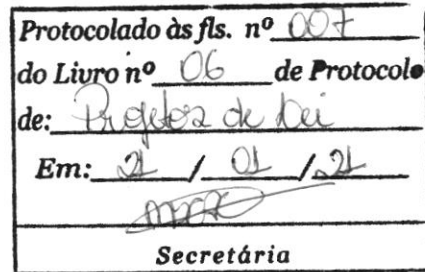 Protocolado às fls. nº 007
do Livro nº 06 de Protocolo
de: Projetos de Lei
Em: 21 / 01 / 21
Secretária